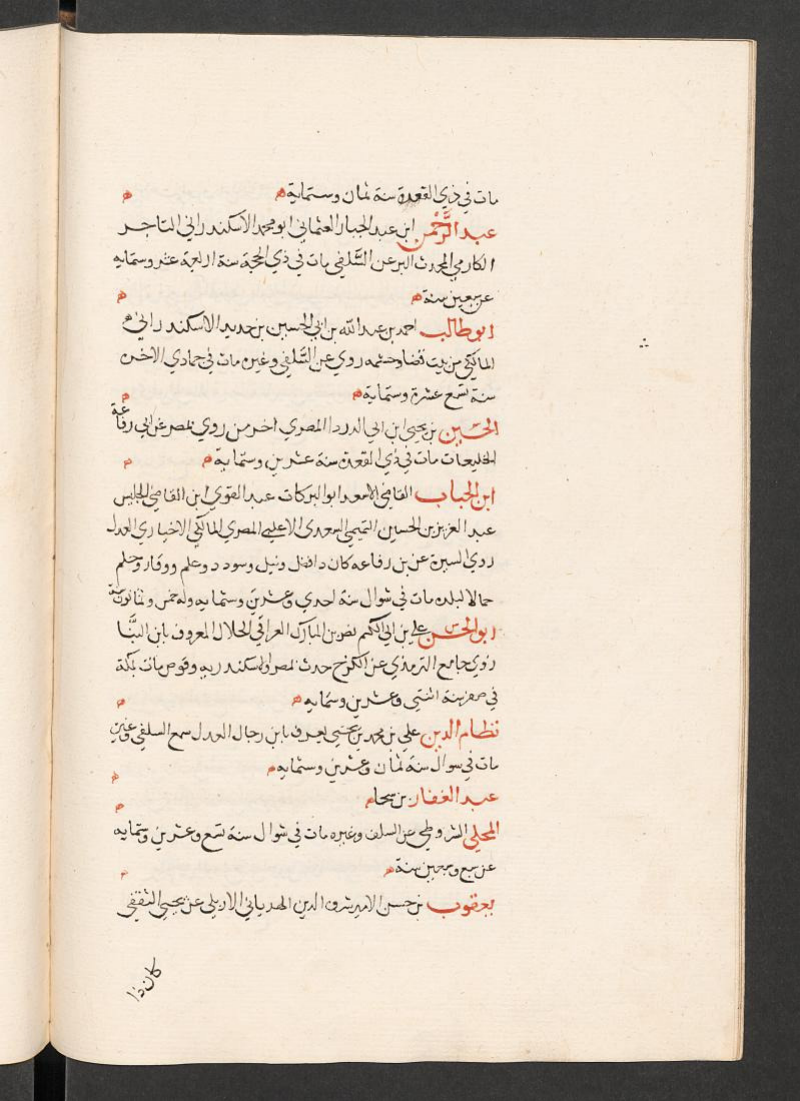 مات في ذي القعدة سنة ثمان وستماية
عبد الرحمن ابن عبد الجبار العثماني ابو محمد الاسكندراني التاجر
الكارمي المحدث البر عن السلفي مات في ذي الحجة سنة اربعة عشر وستمايه
عن سبعين سنة
ابو طالب احمد بن عبد الله بن ابي الحسين بن حديد الاسكندراني
المالكي من بيت قضا وحشمه روي عن السلفي وغيره مات في جمادي الاخره
سنة تسع عشرة وستماية
الحسين بن يحيى ابن ابي الرداد المصري اخر من روي بمصر عن ابي رفاعة
الخليعات مات في ذي القعدة سنة عشرين وستماية
ابن الحباب القاضي الاسعد ابو البركات عبد القوي ابن القاضي الجليس
عبد العزيز بن الحسين التميمي السعدي الاغلبي المصري المالكي الاخباري العدل
روي السيرة عن بن رفاعه كان ذا فضل ونبل وسودد وعلم ووقار وحلم
جمالا لبلده مات في شوال سنة احدي وعشرين وستمايه وله خمس وثمانون سنة
ابو الحسن علي بن ابي الكرم نصر بن المبارك العراقي الخلال المعروف بابن البنا
روي جامع الترمذي عن الكرخ حدث بمصر والاسكندريه وقوص مات بمكة
في صفر سنة اثنتي وعشرين وستمايه
نظام الدين علي بن محمد بن يحيى يعرف بابن رجال العدل سمع السلفي وغيره
مات في سوال سنة ثمان وعشرين وستمايه
عبد الغفار بن سحا
المحلي الشروطي عن السلف وغيره مات في شوال سنة تسع وعشرين وستمايه
عن سبع وسبعين سنة
يعقوب بن حسن الامير شرف الدين الهدباني الاربلي عن يحيى الثقفي
كان ذا